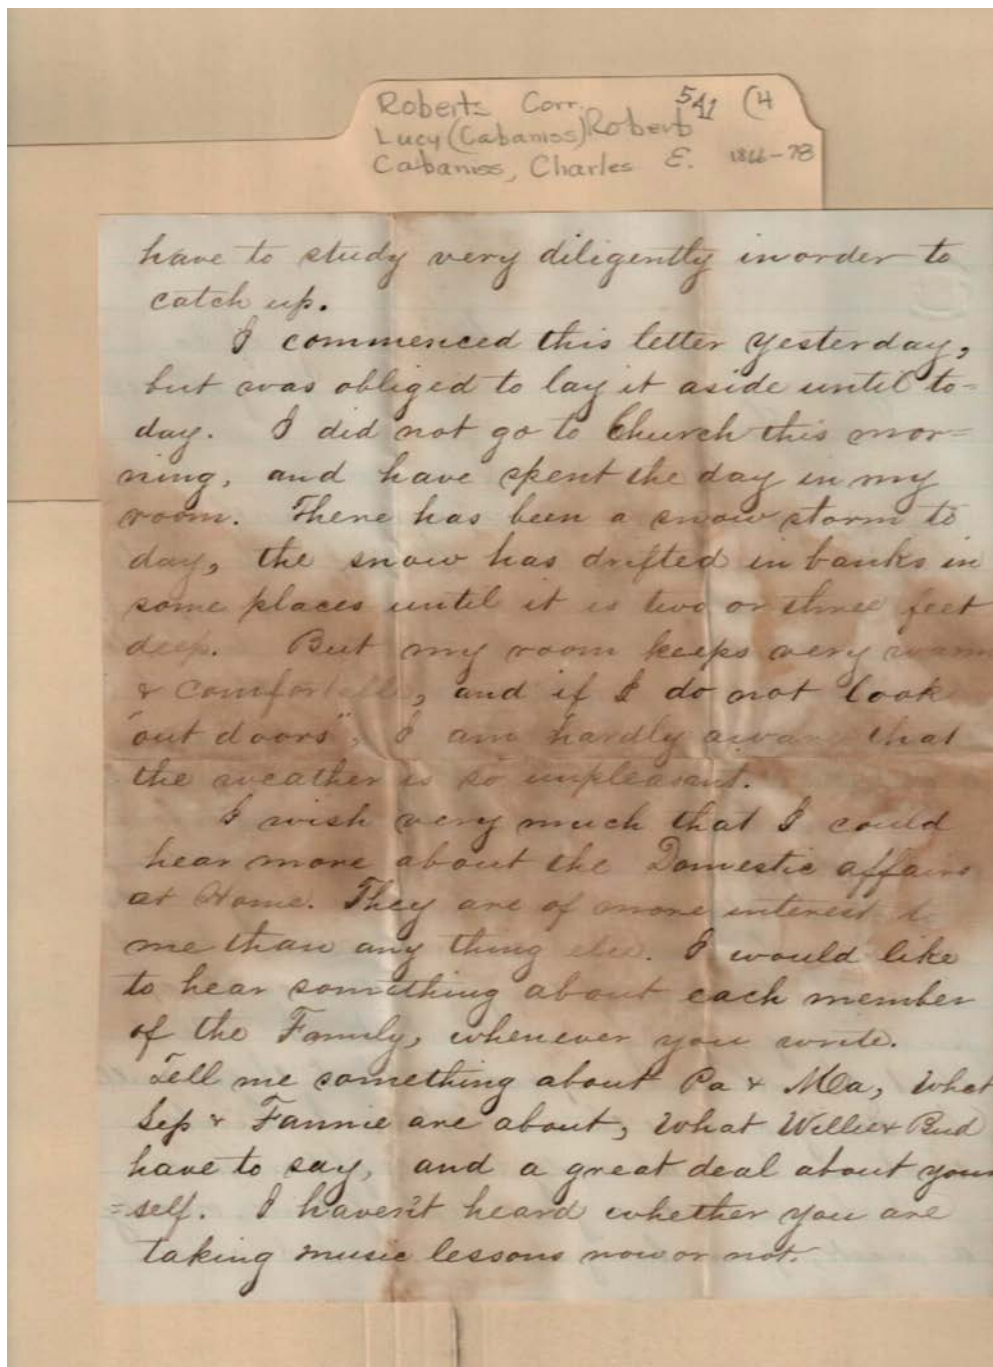 Roberts Corr. 541 (4
Lucy (Cabaniss) Roberts
Cabaniss, Charles E. 1866-78
have to study very diligently in order to
catch up.
I commenced this letter yesterday,
but was obliged to lay it aside until to-
day. I did not go to Church this mor=
ning, and have spent the day in my
room. There has been a snow storm to
day, the snow has drifted in banks in
some places until it is two or three feet
deep. But my room keeps very warm
& comfortable, and if I do not look
"out doors", I am hardly aware that
the weather is so unpleasant.
I wish very much that I could
hear more about the Domestic affairs
at Home. They are of more interest to
me than any thing else. I would like
to hear something about each member
of the Family, whenever you write.
Tell me something about Pa & Ma, what
Sep & Fannie are about, what Willie & Bud
have to say, and a great deal about your
=self. I haven't heard whether you are
taking music lessons now or not.